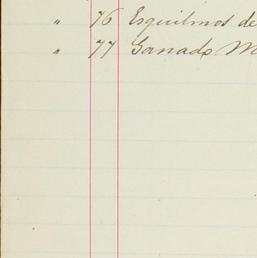 " 76 Esquilmos de
" 77 Ganado M